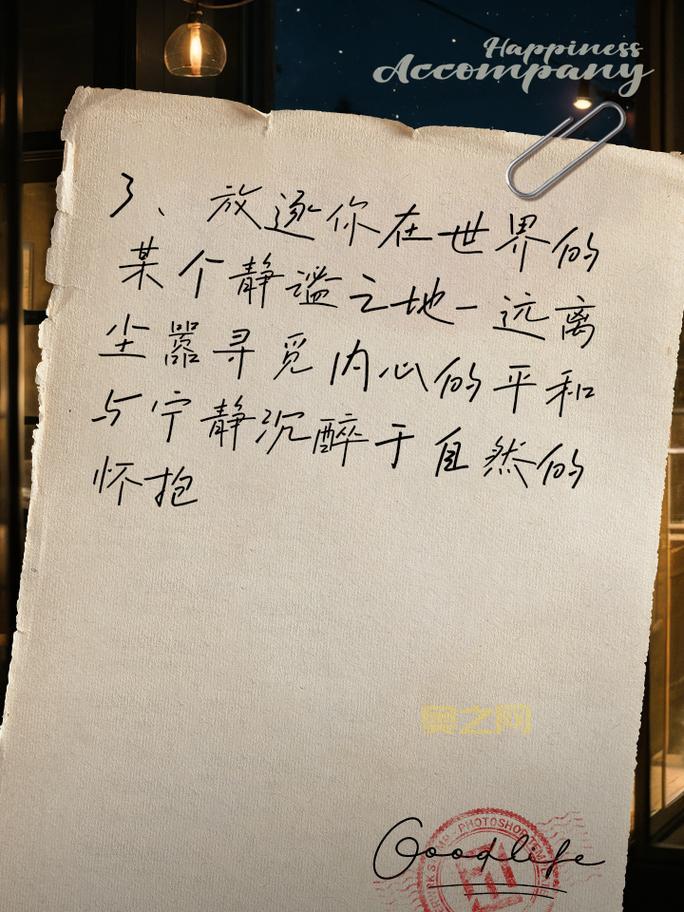 Happiness
Accompany
3、放逐你在世界的
某个静谧之地-远离
尘嚣寻觅内心的平和
与宁静沉醉于自然的
怀抱
PHOTOSHOP
Goodlife